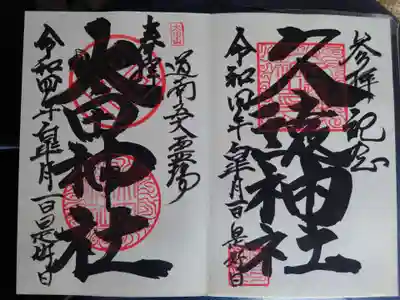 参拝記念
久遠神社
令和四年皐月一日是好日
道南五大霊場
奉拝
太田神社
令和四年皐月一日是好日